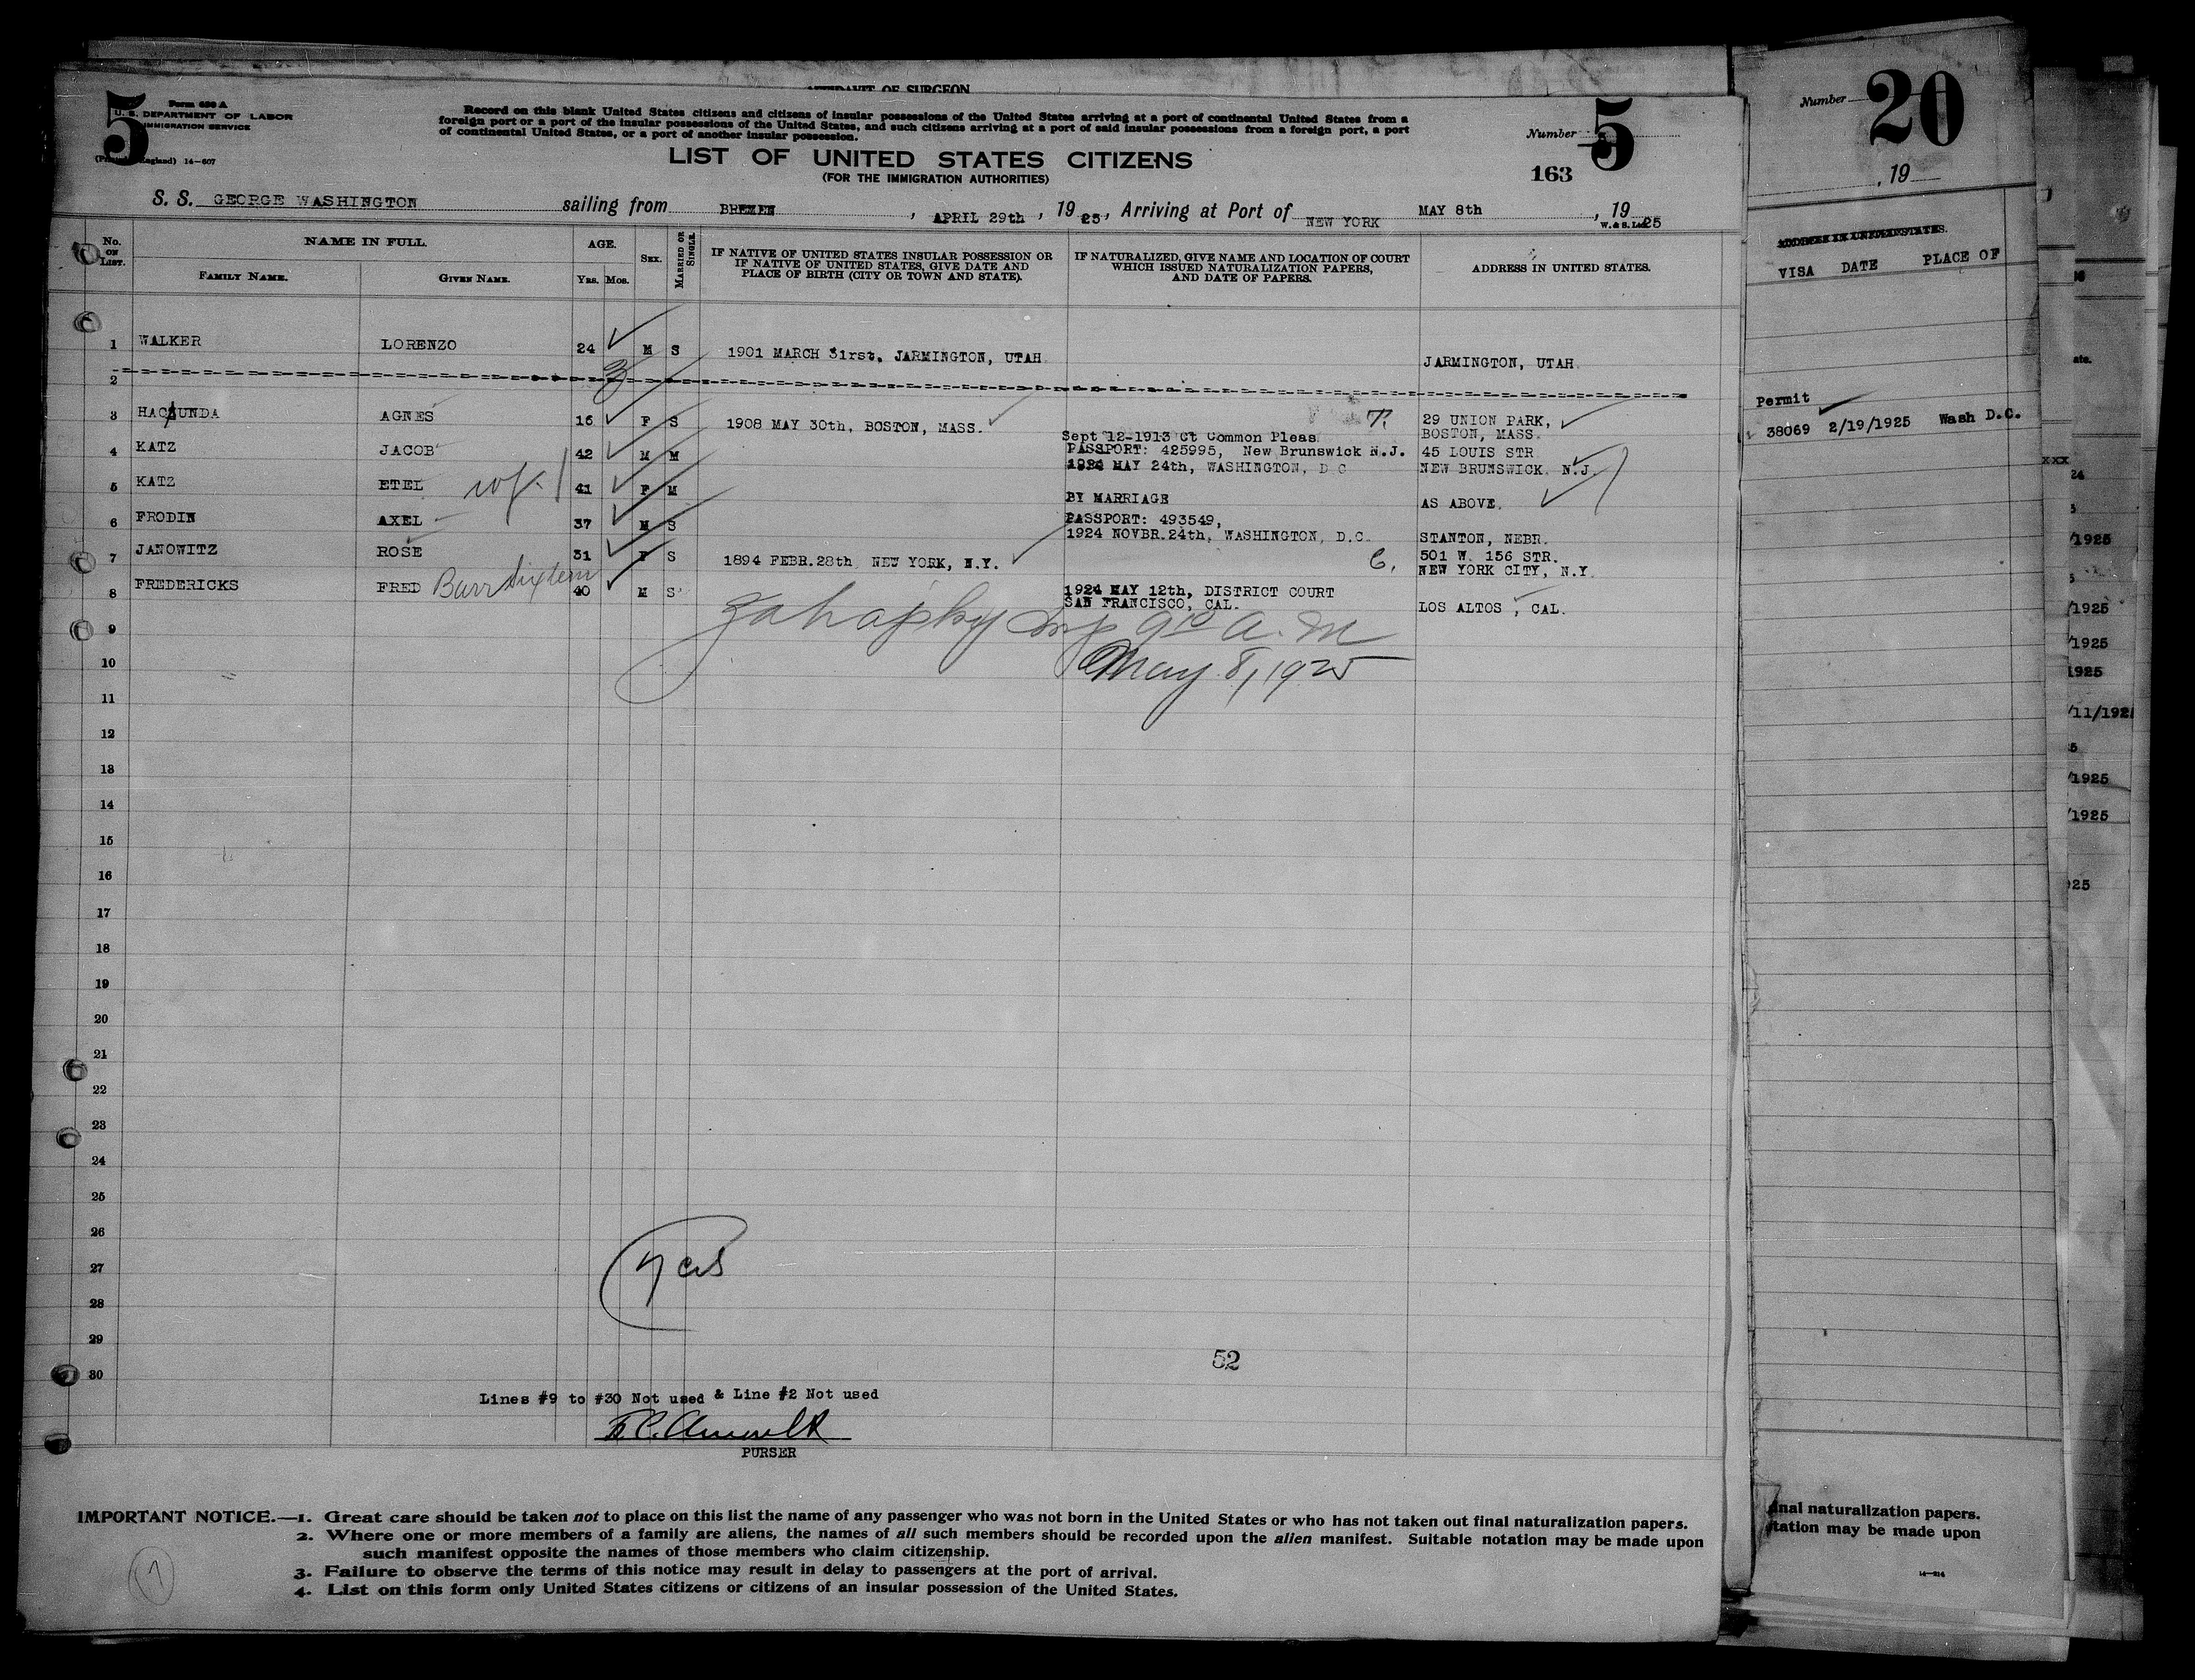 AFFIDAVIT OF SURGEON
5
Form 630 A
U. S. DEPARTMENT OF LABOR
IMMIGRATION SERVICE
14-607
Record on this blank United States citizens and citizens of insular possessions of the United States arriving at a port of continental United States from a
foreign port or a port of the insular possessions of the United States, and such citizens arriving at a port of said insular possessions from a foreign port, a port
of continental United States, or a port of another insular possession.
LIST OF UNITED STATES CITIZENS
(FOR THE IMMIGRATION AUTHORITIES)
Number 5
163
S. S. GEORGE WASHINGTON sailing from BREMEN, APRIL 29th, 19 25, Arriving at Port of NEW YORK MAY 8th, 19 25
No. ON LIST.
NAME IN FULL.
FAMILY NAME. GIVEN NAME.
AGE.
YRS. MOS.
SEX.
MARRIED OR SINGLE.
IF NATIVE OF UNITED STATES INSULAR POSSESSION OR
IF NATIVE OF UNITED STATES, GIVE DATE AND
PLACE OF BIRTH (CITY OR TOWN AND STATE).
IF NATURALIZED, GIVE NAME AND LOCATION OF COURT
WHICH ISSUED NATURALIZATION PAPERS,
AND DATE OF PAPERS.
ADDRESS IN UNITED STATES.
1 WALKER LORENZO 24 M S 1901 MARCH 31rst. JARMINGTON, UTAH JARMINGTON, UTAH
2
3 HACZUNDA AGNES 16 F S 1908 MAY 30th, BOSTON, MASS. T. 29 UNION PARK,
BOSTON, MASS.
Sept 12-1913 Ct Common Pleas
4 KATZ JACOB 42 M M PASSPORT: 425995, New Brunswick N.J. 45 LOUIS STR
1924 MAY 24th, WASHINGTON, D C NEW BRUNSWICK. N.J.
5 KATZ ETEL wf. 41 F M BY MARRIAGE AS ABOVE.
6 FRODIN AXEL 37 M S PASSPORT: 493549,
1924 NOVBR.24th, WASHINGTON, D.C. STANTON, NEBR.
7 JANOWITZ ROSE 31 F S 1894 FEBR.28th NEW YORK, N.Y. C. 501 W. 156 STR.
NEW YORK CITY, N.Y.
8 FREDERICKS FRED 40 M S 1924 MAY 12th, DISTRICT COURT
SAN FRANCISCO, CAL. LOS ALTOS, CAL.
9
A. M
10 May 8, 1925
11
12
13
14
15
16
17
18
19
20
21
22
23
24
25
26
27
28
29
30
52
Lines #9 to #30 Not used & Line #2 Not used
PURSER
IMPORTANT NOTICE.—1. Great care should be taken not to place on this list the name of any passenger who was not born in the United States or who has not taken out final naturalization papers.
2. Where one or more members of a family are aliens, the names of all such members should be recorded upon the alien manifest. Suitable notation may be made upon
such manifest opposite the names of those members who claim citizenship.
3. Failure to observe the terms of this notice may result in delay to passengers at the port of arrival.
4. List on this form only United States citizens or citizens of an insular possession of the United States.
Number 20
, 19
VISA DATE PLACE OF
Permit
38069 2/19/1925 Wash D.C.
final naturalization papers.
tation may be made upon
14-214